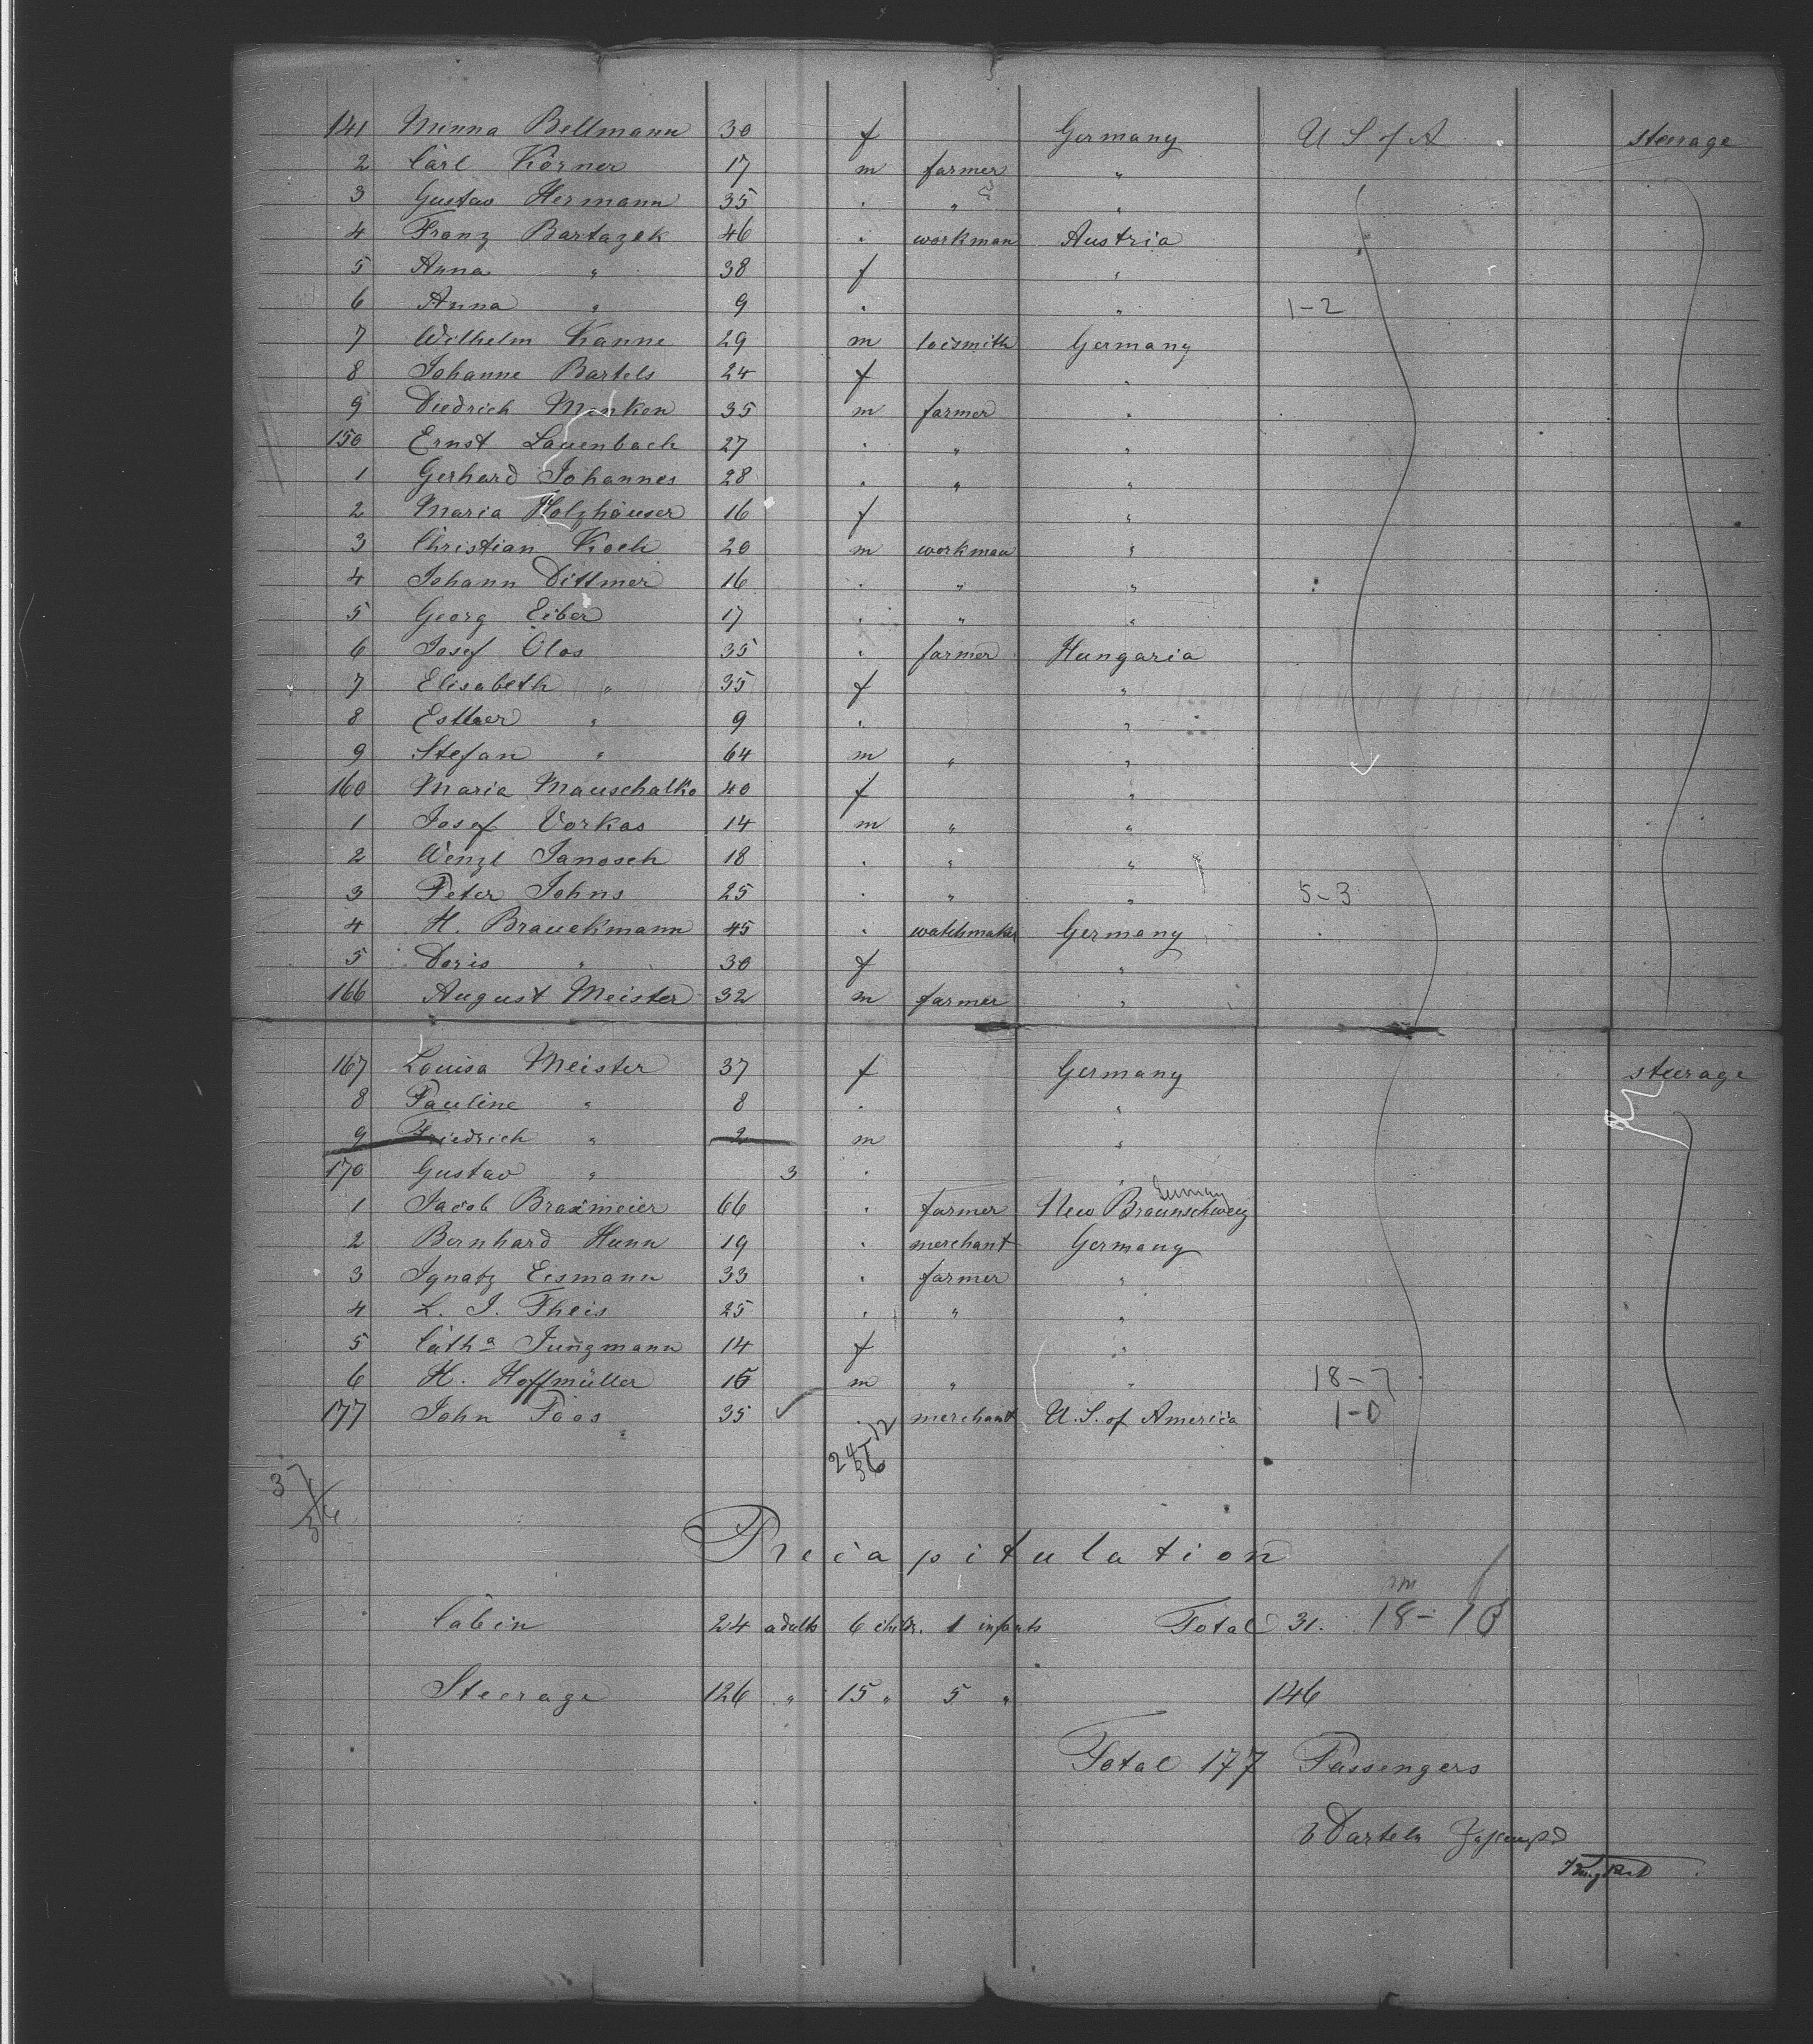 141 Minna Bellmann 30 f Germany U S of A steerage
2 Carl Körner 17 m farmer "
3 Gustav Hermann 35 " " "
4 Franz Bartazek 46 " workman Austria
5 Anna " 38 f "
6 Anna " 9 " " 1-2
7 Wilhelm Kanne 29 m locsmith Germany
8 Johanne Bartels 24 f "
9 Diedrich Menken 35 m farmer "
150 Ernst Lauenbach 27 " " "
1 Gerhard Johannes 28 " " "
2 Maria Holzhäuser 16 f "
3 Christian Koch 20 m workman "
4 Johann Dittmer 16 " " "
5 Georg Eiber 17 " " "
6 Josef Olas 35 " farmer Hungaria
7 Elisabeth " 35 f "
8 Esther " 9 " "
9 Stefan " 64 m " "
160 Maria Mauschalko 40 f "
1 Josef Vorkas 14 m " "
2 Wenzl Janosch 18 " " "
3 Peter Johns 25 " " " 5-3
4 H. Brauckmann 45 " watchmaker Germany
5 Doris " 30 f "
166 August Meister 32 m farmer "
167 Louisa Meister 37 f Germany steerage
8 Pauline " 8 " "
9 Friedrich " 2 m "
170 Gustav " 3 " "
Germany
1 Jacob Braxmeier 66 " farmer New Braunschweig
2 Bernhard Hunn 19 " merchant Germany
3 Ignatz Eismann 33 " farmer "
4 L. J. Theis 25 " " "
5 Cath.a Jungmann 14 f "
6 H. Hoffmüller 16 m " " 18-7
177 John Föos 35 " merchant U.S. of America 1-0
24 12
36
37
36
Recapitulation
Cabin 24 adults 6 childr. 1 infants Total 31. 18-18
Steerage 126 " 15 " 5 " 146
Total 177 Passengers